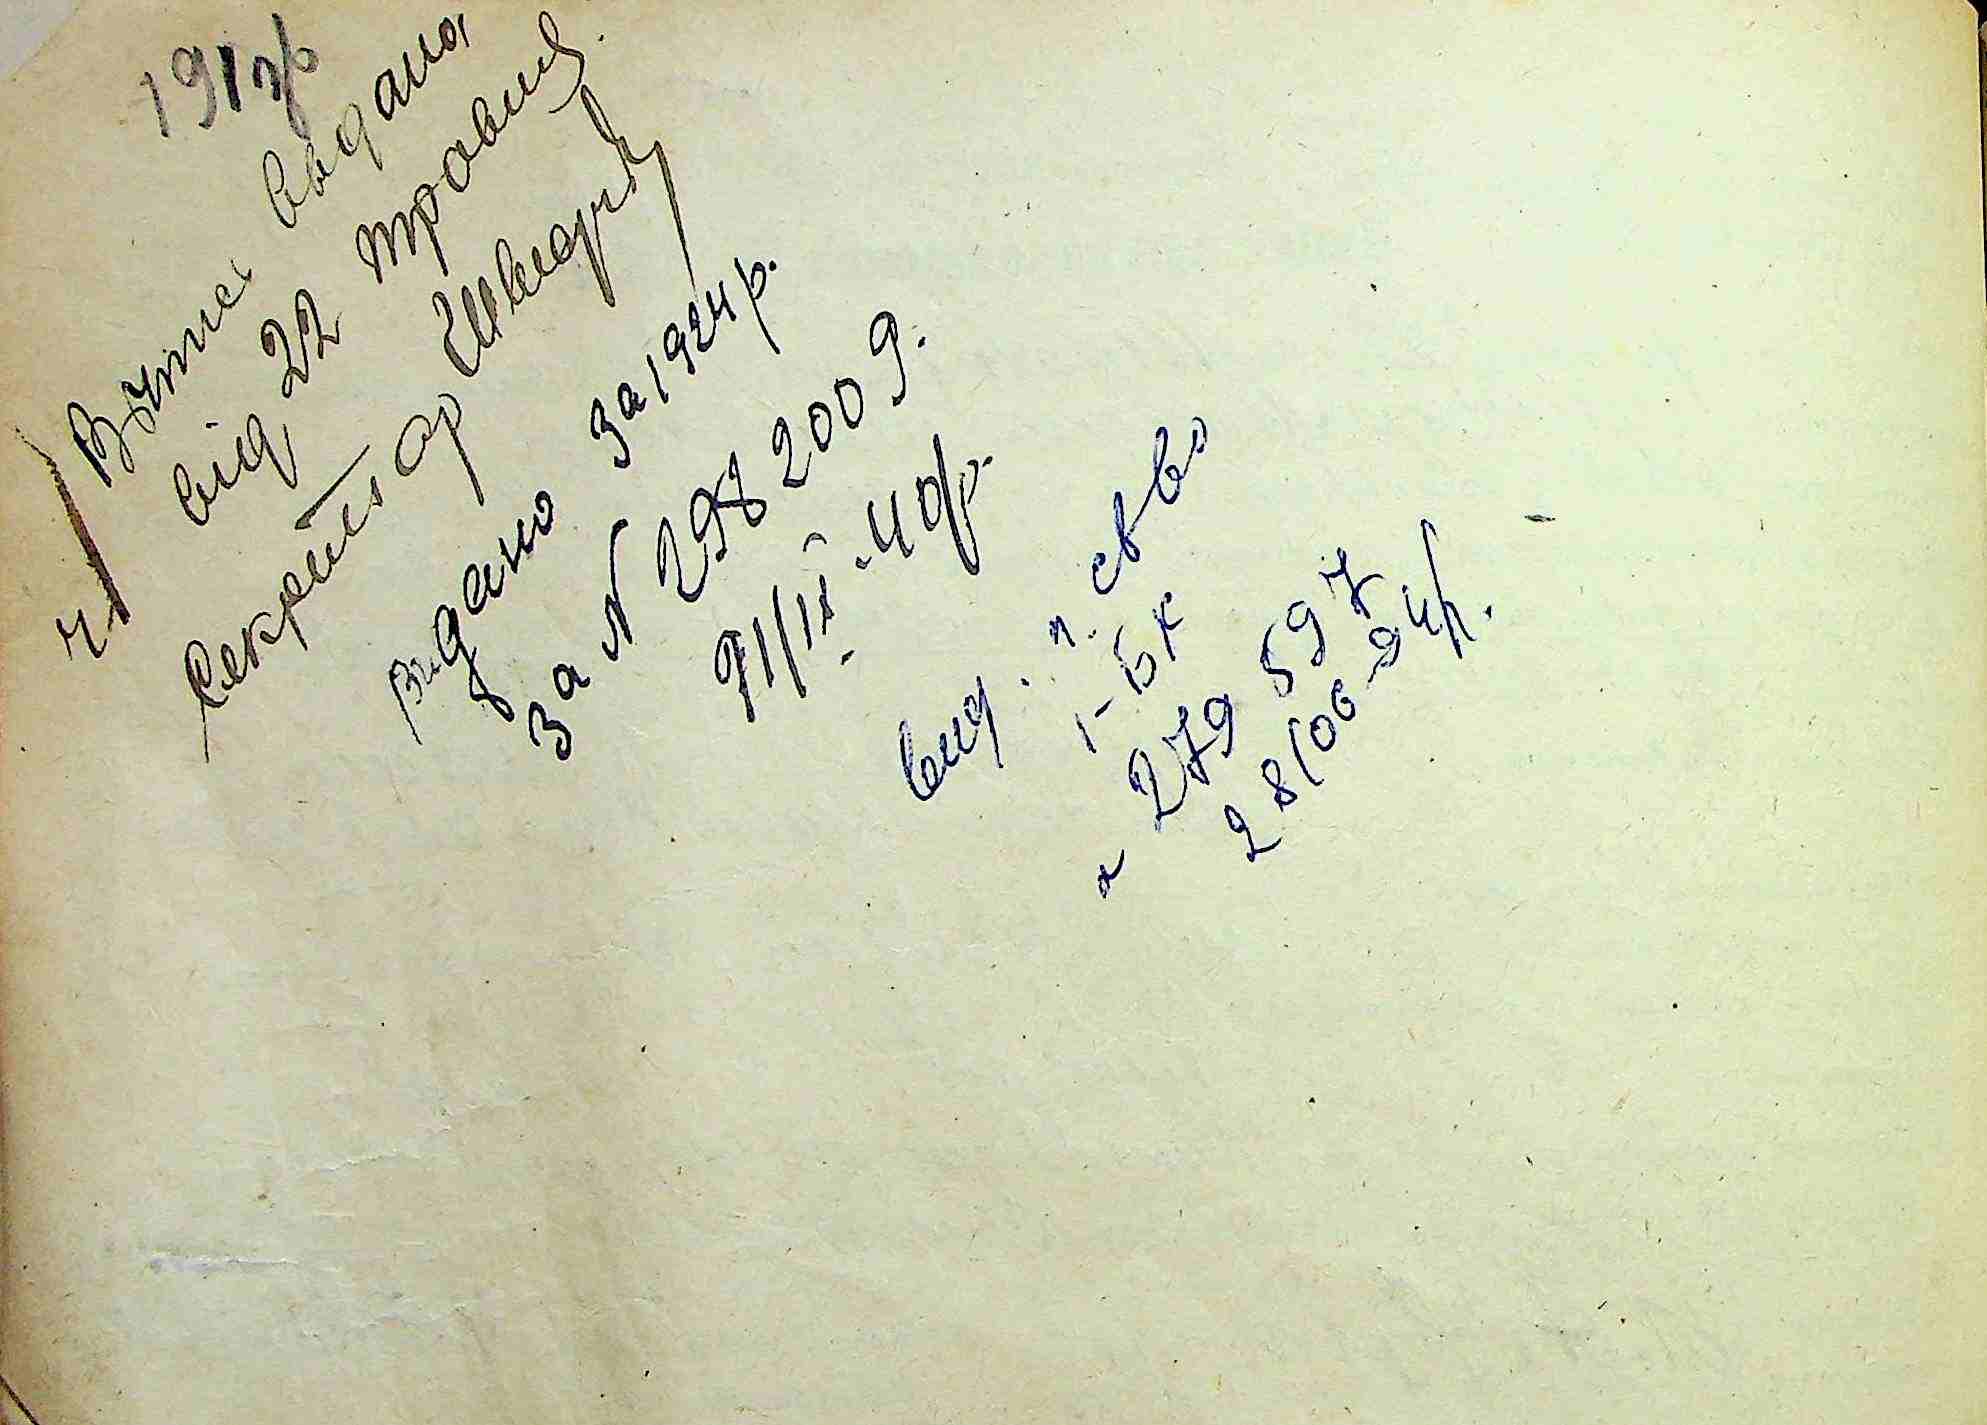 191 р
Витяг видана
від 22 травня
Секретар
видано за 1924 р.
За N 298 2009.
21/IX - 40р.
вид. п. св во
1-БК
279 597
28/06-94р.